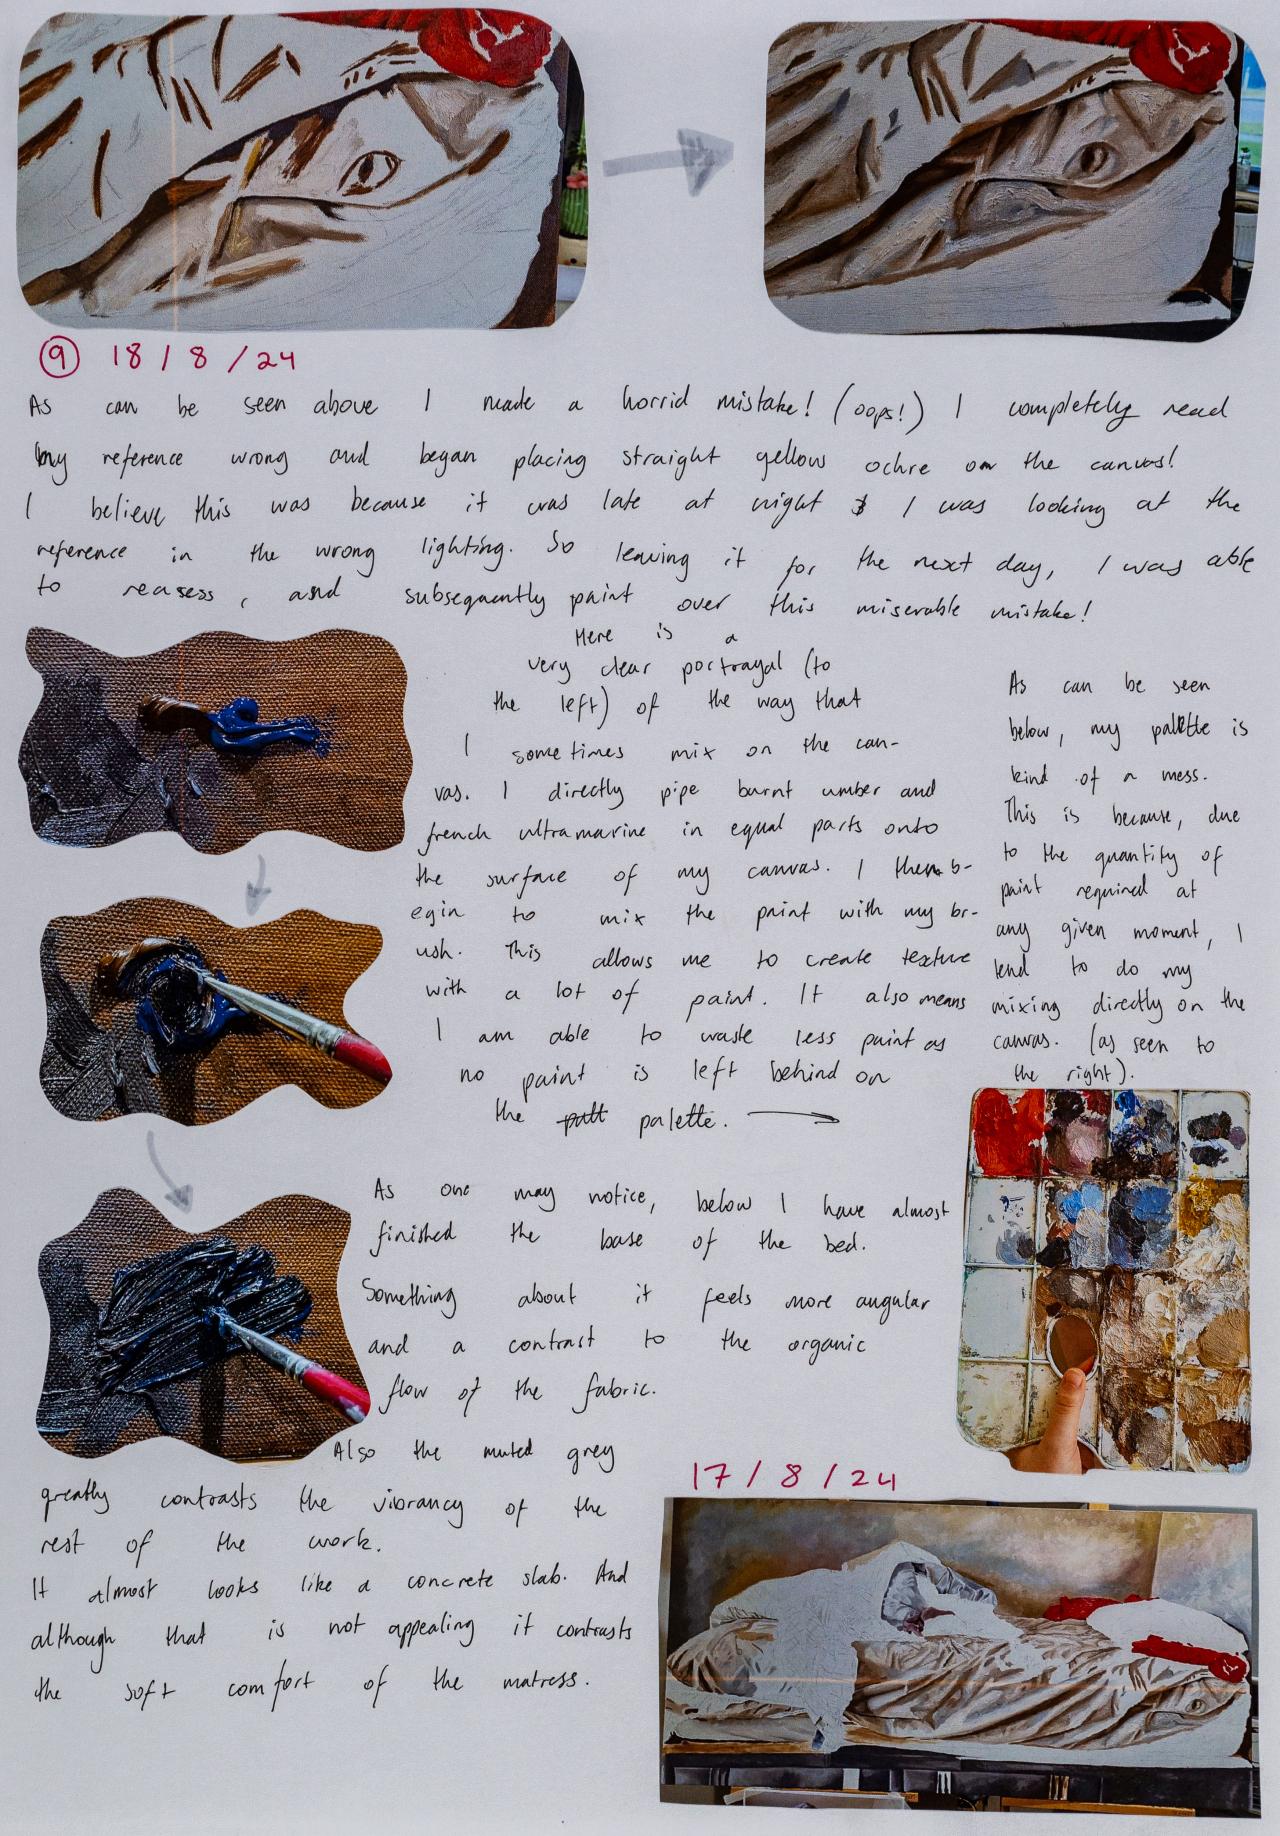 9 18/8/24
As can be seen above I made a horrid mistake! (oops!) I completely read
my reference wrong and began placing straight yellow ochre on the canvas!
I believe this was because it was late at night & I was looking at the
reference in the wrong lighting. So leaving it for the next day, I was able
to reasess, and subsequently paint over this miserable mistake!
Here is a
very clear portrayal (to
the left) of the way that
I sometimes mix on the can-
vas. I directly pipe burnt umber and
french ultramarine in equal parts onto
the surface of my canvas. I then b-
egin to mix the paint with my br-
ush. This allows me to create texture
with a lot of paint. It also means
I am able to waste less paint as
no paint is left behind on
the palette.
As can be seen
below, my palette is
kind of a mess.
This is because, due
to the quantity of
paint required at
any given moment, I
tend to do my
mixing directly on the
canvas. (as seen to
the right).
As one may notice, below I have almost
finished the base of the bed.
Something about it feels more angular
and a contrast to the organic
flow of the fabric.
Also the muted grey
greatly contrasts the vibrancy of the
rest of the work.
It almost looks like a concrete slab. And
although that is not appealing it contrasts
the soft comfort of the matress.
17/8/24